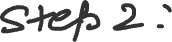 Step 2: